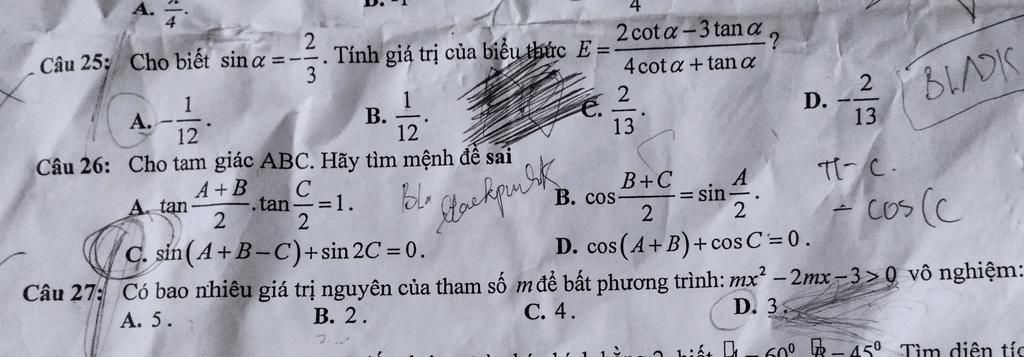 A. π/4.
4
Câu 25: Cho biết sin α = -2/3. Tính giá trị của biểu thức E = (2cot α - 3tan α)/(4cot α + tan α)?
BLADK
A. -1/12. B. 1/12. C. 2/13. D. -2/13
Câu 26: Cho tam giác ABC. Hãy tìm mệnh đề sai
π - C.
A. tan (A+B)/2 . tan C/2 = 1. B. cos (B+C)/2 = sin A/2.
- cos(C
C. sin(A+B-C) + sin 2C = 0. D. cos(A+B) + cos C = 0.
Câu 27: Có bao nhiêu giá trị nguyên của tham số m để bất phương trình: mx² - 2mx - 3 > 0 vô nghiệm:
A. 5. B. 2. C. 4. D. 3.
60⁰ 45⁰ Tìm diện